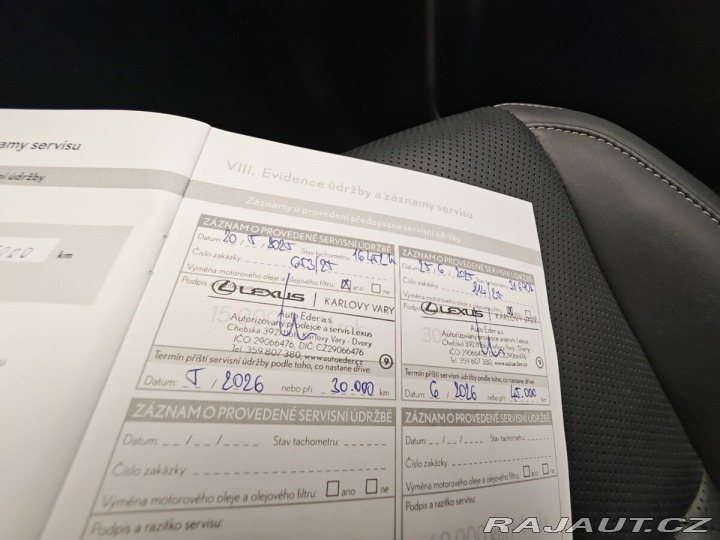 amy servisu
ní údržby
km
VIII. Evidence údržby a záznamy servisu
Záznamy o provedení předepsané servisní údržby
ZÁZNAM O PROVEDENÉ SERVISNÍ ÚDRŽBĚ
Datum: 20. 5. 2025 Stav tachometru:
Číslo zakázky: 653/25
Výměna motorového oleje a olejového filtru: ☒ ano ☐ ne
Podpis
LEXUS | KARLOVY VARY
Auto Eder a.s.
Autorizovaný prodejce a servis Lexus
Chebská 392 Karlovy Vary - Dvory
IČO 29066476, DIČ CZ29066476
Tel. 359 807 380, www.autoeder.cz
9
Termín příští servisní údržby podle toho, co nastane dříve:
Datum: 5 / 2026 nebo při 30.000 km
ZÁZNAM O PROVEDENÉ SERVISNÍ ÚDRŽBĚ
Datum: 25. 6. 2025 Stav tachometru:
Číslo zakázky: 814/25
Výměna motorového oleje a olejového filtru: ☒ ano ☐ ne
Podpis
LEXUS | KARLOVY VARY
Auto Eder a.s.
Autorizovaný prodejce a servis Lexus
Chebská 392 Karlovy Vary - Dvory
IČO 29066476, DIČ CZ29066476
Tel. 359 807 380, www.autoeder.cz
9
Termín příští servisní údržby podle toho, co nastane dříve:
Datum: 6 / 2026 nebo při 45.000 km
ZÁZNAM O PROVEDENÉ SERVISNÍ ÚDRŽBĚ
Datum: __/__/____ Stav tachometru:
Číslo zakázky:
Výměna motorového oleje a olejového filtru: ☐ ano ☐ ne
Podpis a razítko servisu:
ZÁZNAM O PROVEDENÉ SERVISNÍ ÚDRŽBĚ
Datum: __/__/____ Stav tachometru:
Číslo zakázky:
Výměna motorového oleje a olejového filtru: ☐ ano ☐ ne
Podpis a razítko servisu:
RAJAUT.CZ